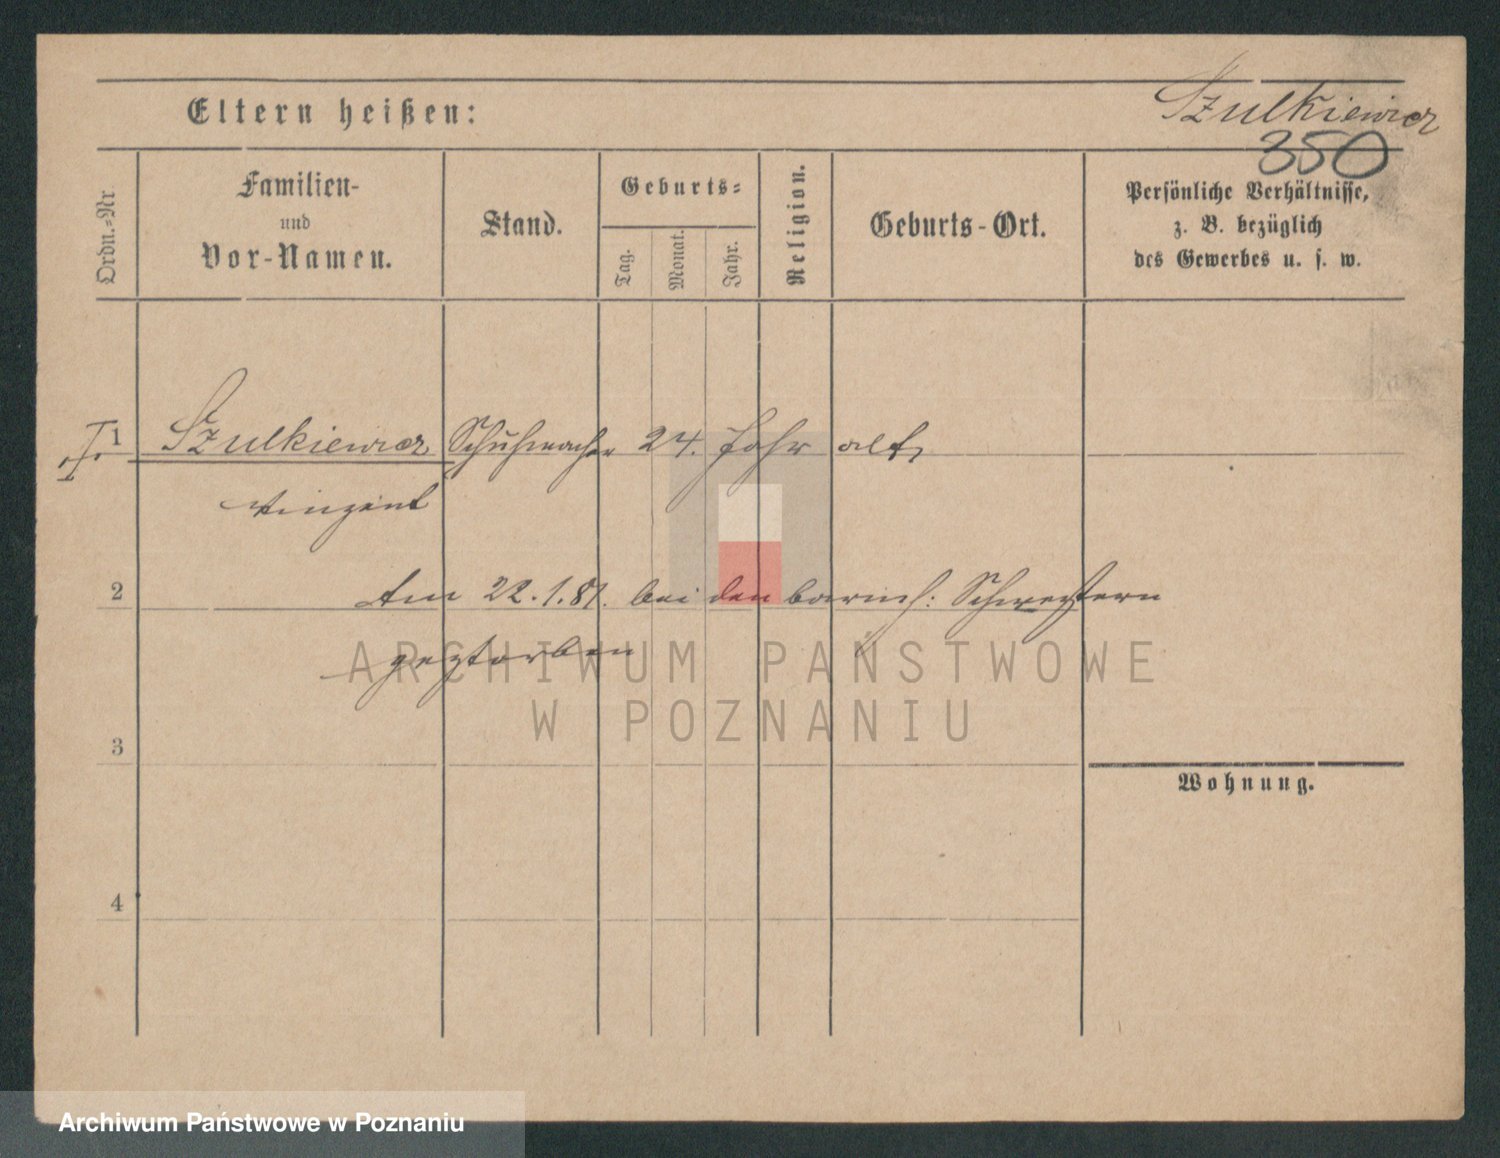 Szulkiewicz
Eltern heißen:
350
Ordn.-Nr
Familien-
und
Vor-Namen.
Stand.
Geburts-
Tag.
Monat.
Jahr.
Religion.
Geburts-Ort.
Persönliche Verhältnisse,
z. B. bezüglich
des Gewerbes u. s. w.
1 Szulkiewicz Schuhmacher 24. Jahr alt,
Vinzent
2 Am 22.1.81. bei den barmh: Schwestern
gestorben
ARCHIWUM PAŃSTWOWE
W POZNANIU
3
Wohnung.
4
Archiwum Państwowe w Poznaniu